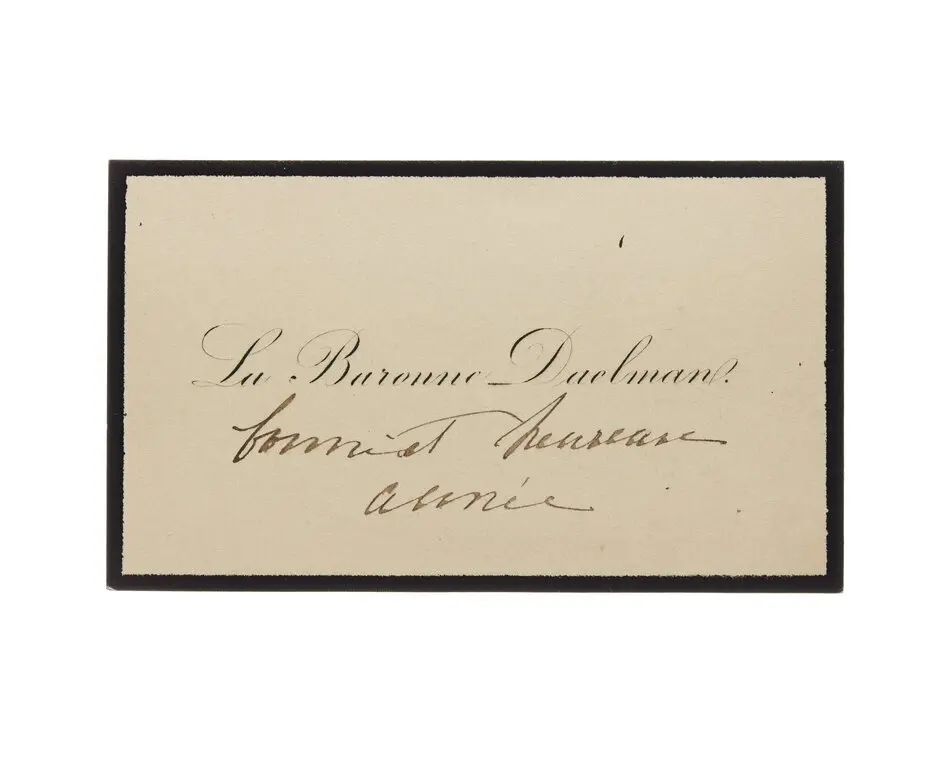 La Baronne Daelman.
bonne et heureuse
année